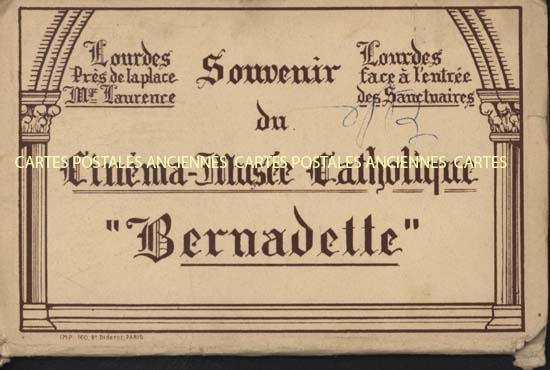 Lourdes
Près de la place
Mgr Laurence
Souvenir
Lourdes
face à l'entrée
des Sanctuaires
du
CARTES POSTALES ANCIENNES CARTES POSTALES ANCIENNES CARTES
Cinéma-Musée Catholique
"Bernadette"
IMP. 160, Bd Diderot, PARIS